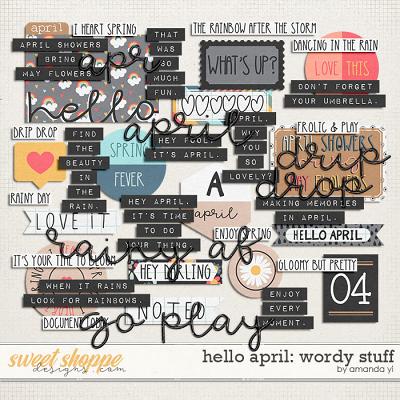 april
I HEART SPRING
THAT
WAS
SO
MUCH
FUN.
THE RAINBOW AFTER THE STORM
DANCING IN THE RAIN
APRIL SHOWERS
BRING
MAY FLOWERS
apr
WHAT'S UP?
LOVE THIS
DON'T FORGET
YOUR UMBRELLA.
hello
april
DRIP DROP
FIND
THE
BEAUTY
IN
THE
RAIN.
SPRING
FEVER
HEY FOOL,
IT'S APRIL.
APRIL,
WHY
YOU
SO
LOVELY?
FROLIC & PLAY
APRIL SHOWERS
drip
drop
RAINY DAY
LOVE IT
HEY APRIL,
IT'S TIME
TO DO
YOUR THING.
A
april
MAKING MEMORIES
IN APRIL.
ENJOY SPRING
HELLO APRIL
rainy af
IT'S YOUR TIME TO BLOOM
WHEN IT RAINS
LOOK FOR RAINBOWS.
HEY DARLING
GLOOMY BUT PRETTY
04
DOCUMENT TODAY
NOTED
go play
ENJOY
EVERY
MOMENT.
sweet shoppe
designs.com
hello april: wordy stuff
by amanda yi